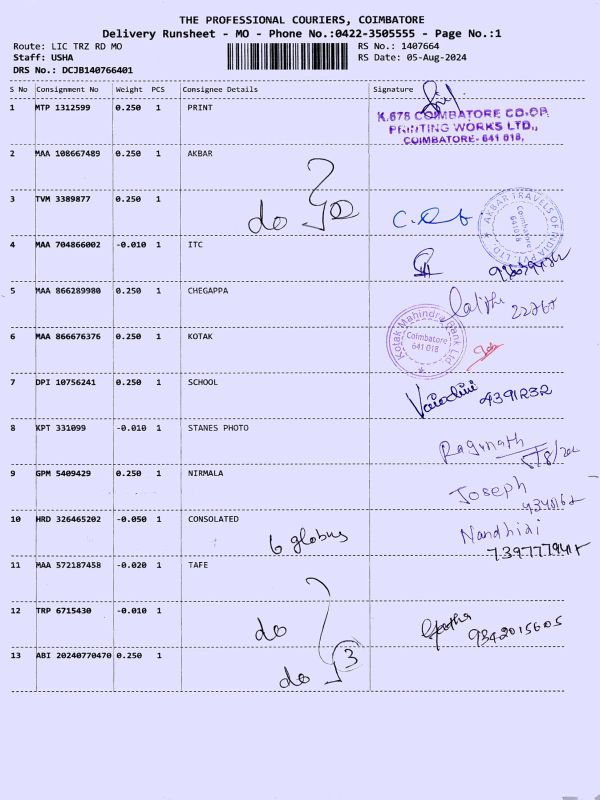 THE PROFESSIONAL COURIERS, COIMBATORE
Delivery Runsheet - MO - Phone No.:0422-3505555 - Page No.:1
Route: LIC TRZ RD MO RS No.: 1407664
Staff: USHA RS Date: 05-Aug-2024
DRS No.: DCJB140766401
S No Consignment No Weight PCS Consignee Details Signature
1 MTP 1312599 0.250 1 PRINT
K.678 COIMBATORE CO-OP.
PRINTING WORKS LTD.,
COIMBATORE- 641 018.
2 MAA 108667489 0.250 1 AKBAR
3 TVM 3389877 0.250 1
do
AKBAR TRAVELS OF INDIA PVT. LTD.
Coimbatore
641018
4 MAA 704866002 -0.010 1 ITC
5 MAA 866289980 0.250 1 CHEGAPPA
Lalitha 22767
6 MAA 866676376 0.250 1 KOTAK
Kotak Mahindra Bank Ltd.
Coimbatore
641 018
7 DPI 10756241 0.250 1 SCHOOL
4391232
8 KPT 331099 -0.010 1 STANES PHOTO
Ragunath
5/8/
9 GPM 5409429 0.250 1 NIRMALA
Joseph
10 HRD 326465202 -0.050 1 CONSOLATED
6 globus
Nandhini
11 MAA 572187458 -0.020 1 TAFE
12 TRP 6715430 -0.010 1
do
9342015605
13 ABI 20240770470 0.250 1
do 3